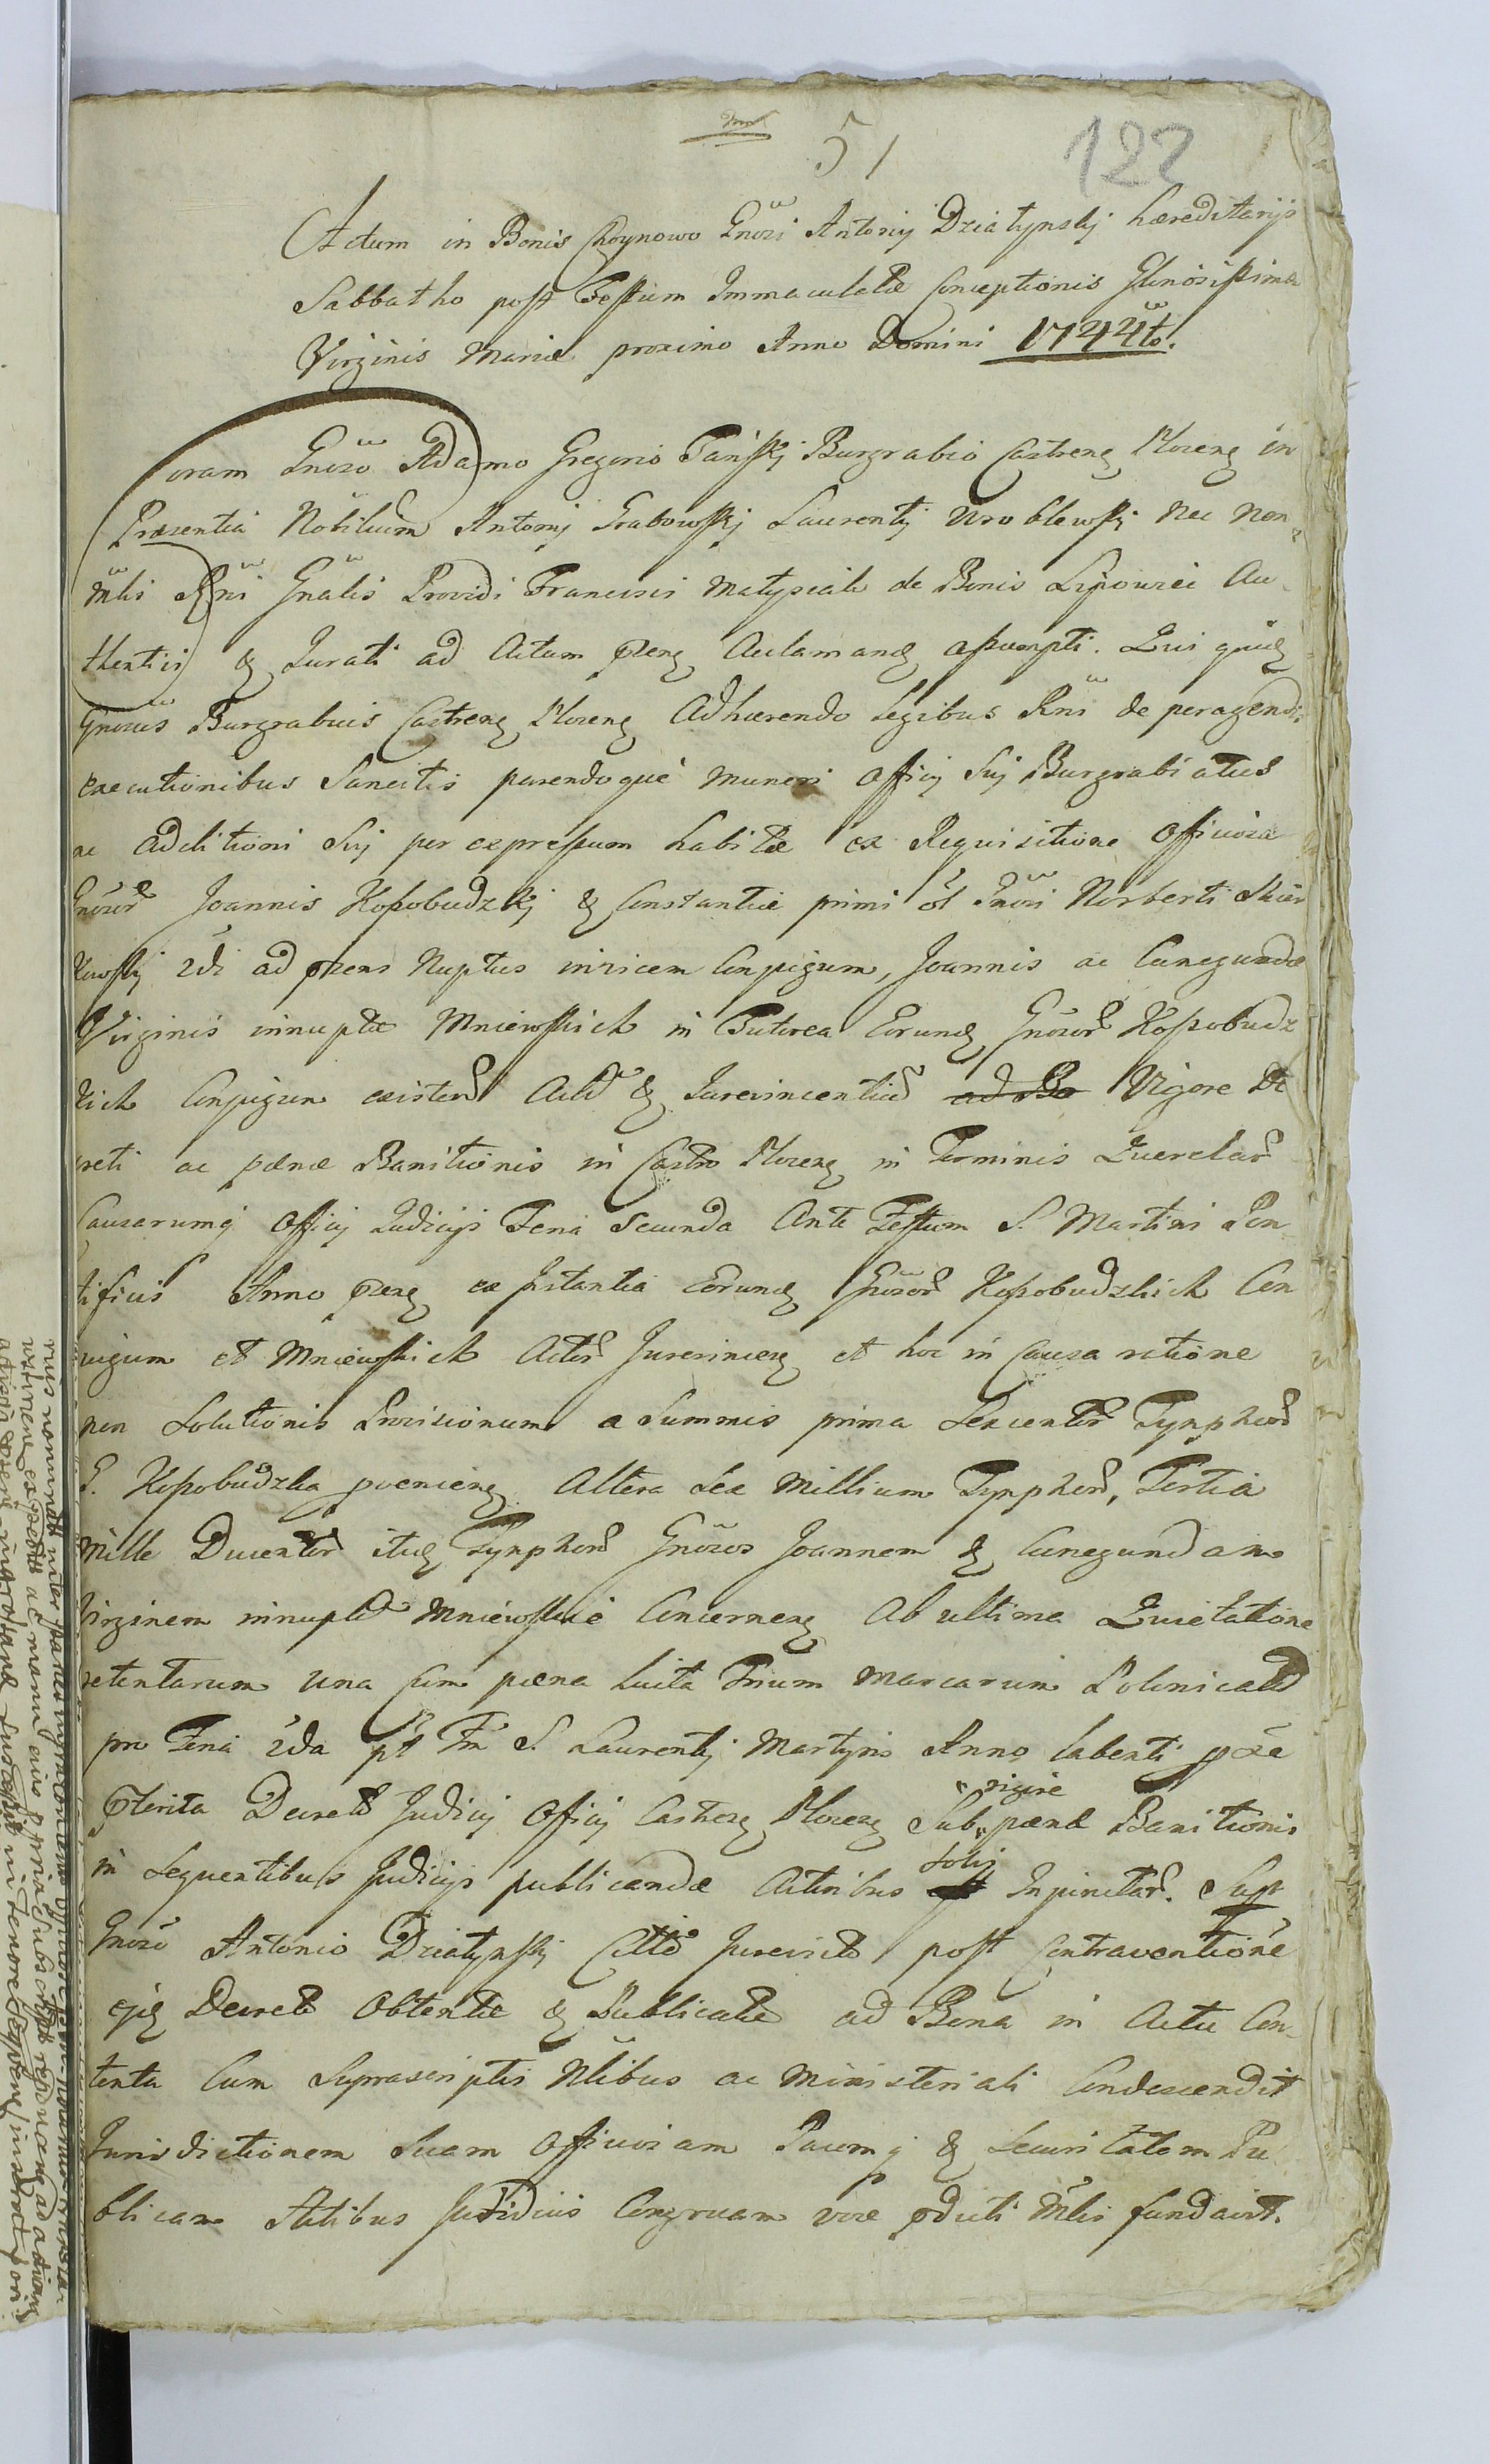 51
122
Actum in Bonis Choynowo Gnosi Antonij Dziatynskj hæreditarijs
Sabbatho post Festum Immaculatæ Conceptionis Glnosissimæ
Virginis Mariæ proximo Anno Domini 1744to.
Coram Gnoso Adamo Gregorio Tanskj Burgrabio Castren Plocen in
Præsentia Nobilium Antonij Grabowskj Laurentij Wroblewskj Nec Non
Mlis Rni Gnalis Providi Francisci Matysiak de Bonis Lipowiec Au
thentici & Jurati ad Actum præn Aclamand assumpti. Qui quid
Gnosus Burgrabius Castren Plocen Adhærendo Legibus Rni de peragendis
executionibus Sancitis parendoque muneri Officij Sui Burgrabiatus
ac aditioni Sui per expressum habitæ ex Requisitione Officiosa
Gnosor Joannis Kossobudzkj & Constantiæ primi ol Gnosi Norberti
2di ad præns Nuptus invicem Conjugum, Joannis ac Cunegundæ
Virginis innuptæ Mniewskich in Tutorea Eorund Gnosor Kossobudz
kich Conjugum existen Act & Jurevincentiu ad Bo Vigore De
creti ac pænæ Banitionis in Castro Plocen in Terminis Querelar
Causarumq Officij Judicijs Feria Secunda Ante Festum S. Martini Pon
tificis Anno præn ex Instantia eorund Gnosor Kossobudzkich Con
iugum et Mniewskich Actor Jurevincen et hoc in Causa ratione
non Solutionis Provisionum a Summis prima Sexcentor Tynphor
G. Kossobudzka provenien Altera Sex Millium Tynphor, Tertia
Mille Ducentor itid Tynphor Gnosos Joannem & Cunegundam
Virginem innupt Mniewskie Concernen Ab ultima Quietatione
retentarum una Cum pæna luita Trium Marcarum Polonicali
pro Feria 2da pt Fm S. Laurentij Martyris Anno labenti
præterita Decreto Judicij Officij Castren Plocen Sub vigore pænæ Banitionis
in Sequentibus Judicijs publicandæ Actoribus solvi Injunctar. Super
Gnoso Antonio Dziatynskj Citto Jurevicto post Contraventione
ejd Decreto Obtentæ & Publicatæ ad Bona in Actu Con
tenta Cum Suprascriptis Nlibus ac Ministeriali Condescendit
Jurisdictionem Suam Officiosam Pacemq & Securitatem Pu
blicam Actibus Judicijs Congruam voce pdicti Mlis fundavit.